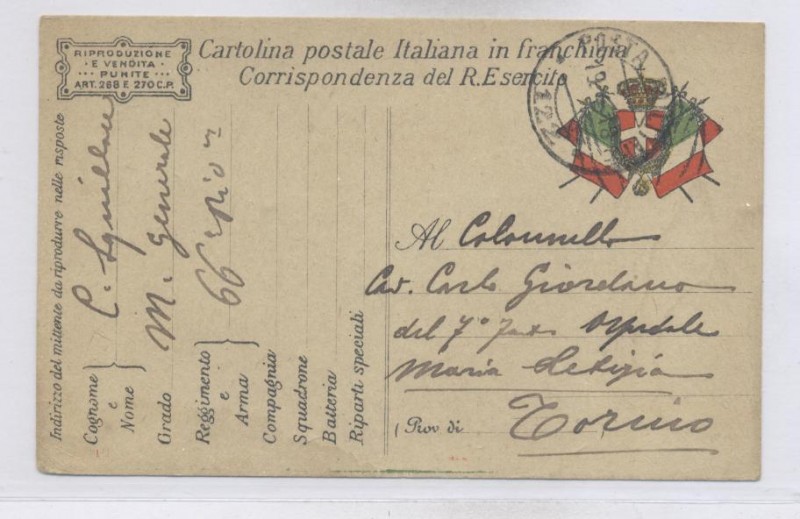 RIPRODUZIONE
E VENDITA
PUNITE
ART. 268 E 270 C.P.
Cartolina postale Italiana in franchigia
Corrispondenza del R. Esercito
POSTA
Indirizzo del mittente da riprodurre nelle risposte
Cognome e Nome
C. Squillace
Grado
M. generale
Reggimento e Arma
66
Compagnia
Squadrone
Batteria
Riparti speciali
Al Colonnello
Cav. Carlo Giordano
del 7º Ospedale
Maria Letizia
(Prov di Torino